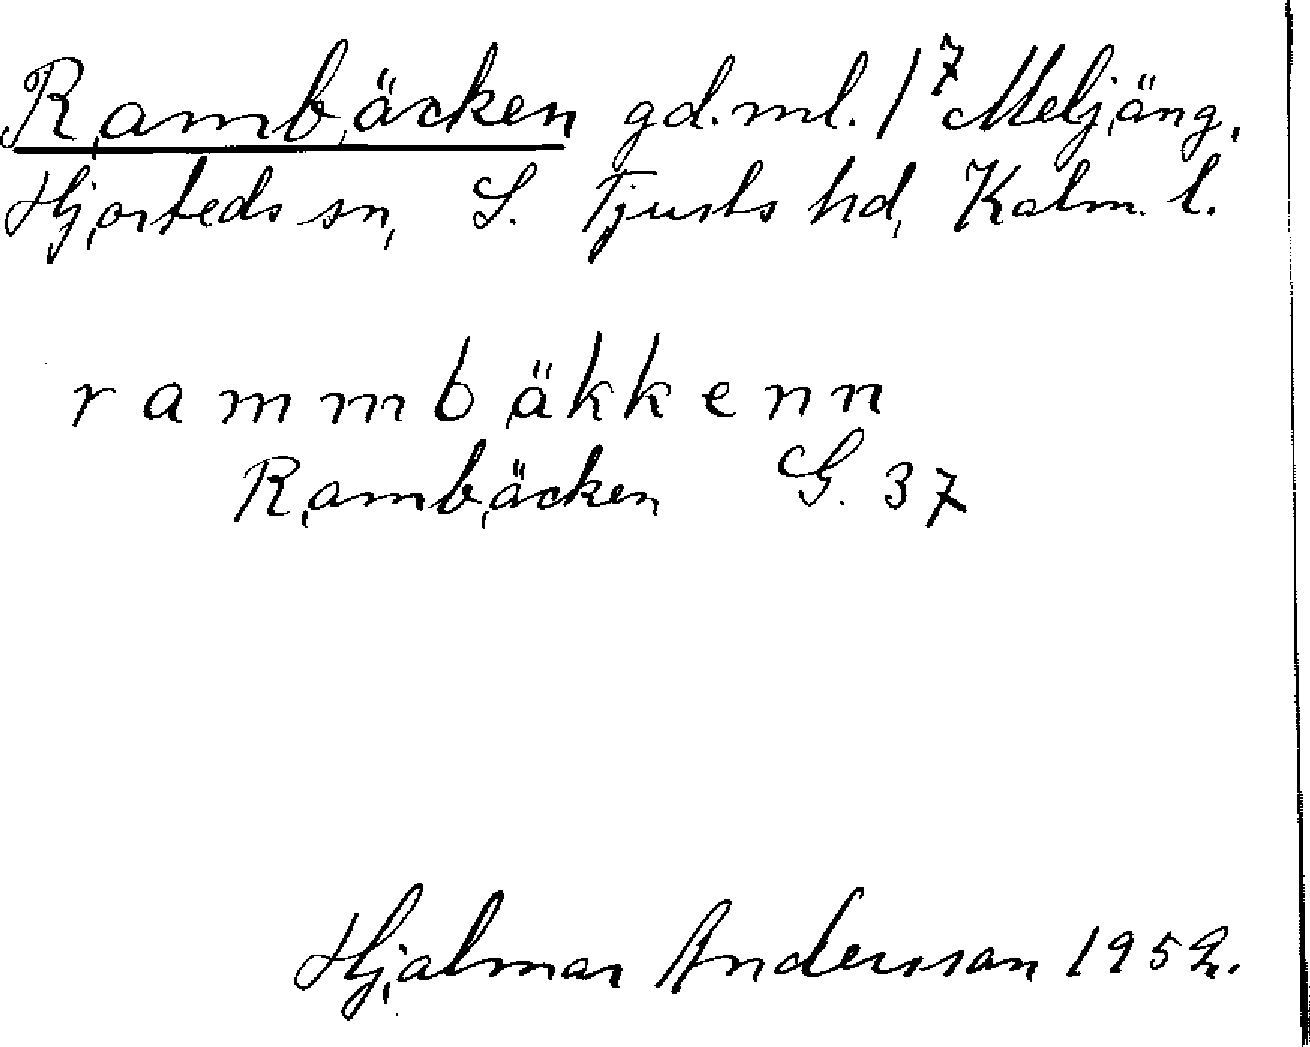 Rambäcken gd. ml. 1⁷ Meljäng,
Hjorteds sn, S. Tjusts hd, Kalm. l.
rammbäkkenn
Rambäcken G. 37
Hjalmar Andersson 1952.